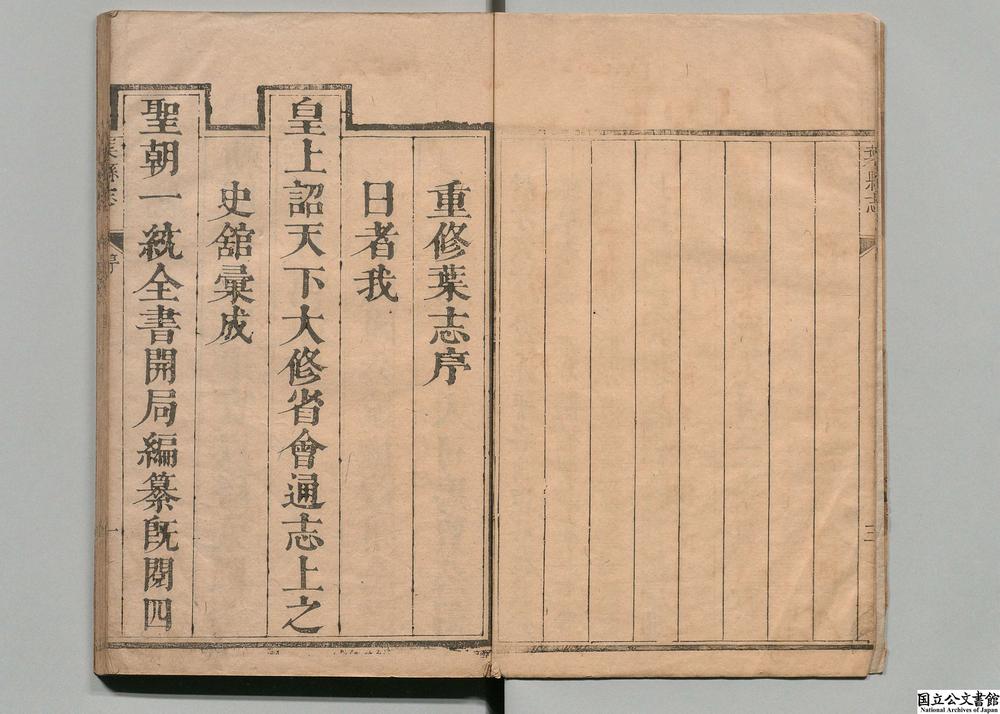 葉縣志
三
重修葉志序
日者我
皇上詔天下大修省會通志上之
史舘彙成
聖朝一統全書開局編纂既閱四
葉縣志
序
一
国立公文書館
National Archives of Japan